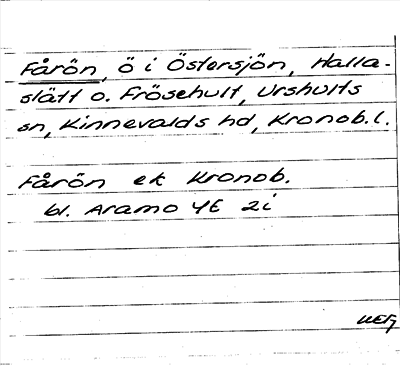 Fårön, ö i Östersjön, Halla-
slätt o. Frösehult, Urshults
sn, Kinnevalds hd, Kronob. l.
Fårön ek Kronob.
bl. Aramo 4E 2i